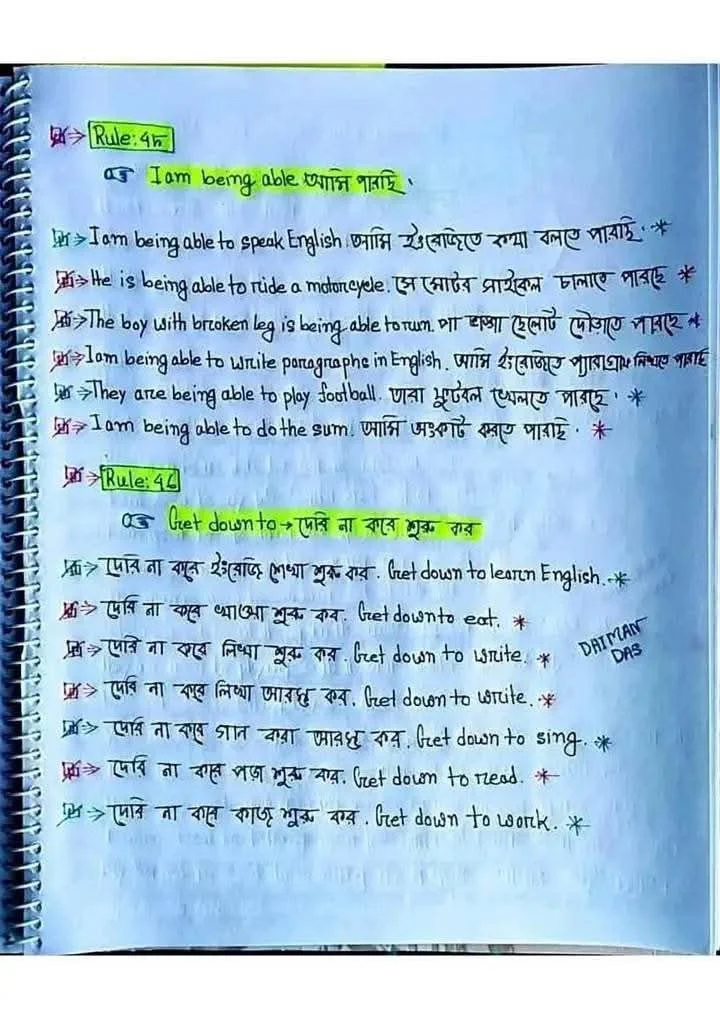 Rule: 45
I am being able আমি পারছি.
I am being able to speak English. আমি ইংরেজিতে কথা বলতে পারছি.
He is being able to ride a motorcycle. সে মোটর সাইকেল চালাতে পারছে
The boy with broken leg is being able to run. পা ভাঙ্গা ছেলেটি দৌড়াতে পারছে
I am being able to write paragraphe in English. আমি ইংরেজিতে প্যারাগ্রাফ লিখতে পারছি
They are being able to play football. তারা ফুটবল খেলতে পারছে.
I am being able to do the sum. আমি অংকটি করতে পারছি.
Rule: 46
Get down to → দেরি না করে শুরু কর
দেরি না করে ইংরেজি শেখা শুরু কর. Get down to learn English.
দেরি না করে খাওয়া শুরু কর. Get down to eat.
দেরি না করে লিখা শুরু কর. Get down to write.
DAIMAN
DAS
দেরি না করে লিখা আরম্ভ কর. Get down to write.
দেরি না করে গান করা আরম্ভ কর. Get down to sing.
দেরি না করে পড়া শুরু কর. Get down to read.
দেরি না করে কাজ শুরু কর. Get down to work.